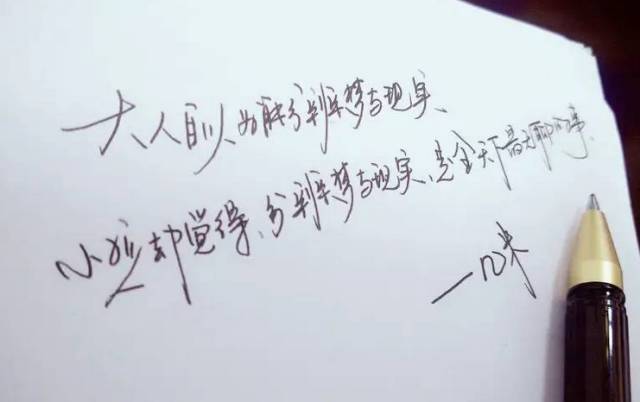 大人自以为能分辨梦与现实、
小孩却觉得、分辨梦与现实、是全天下最无聊的事、
—几米